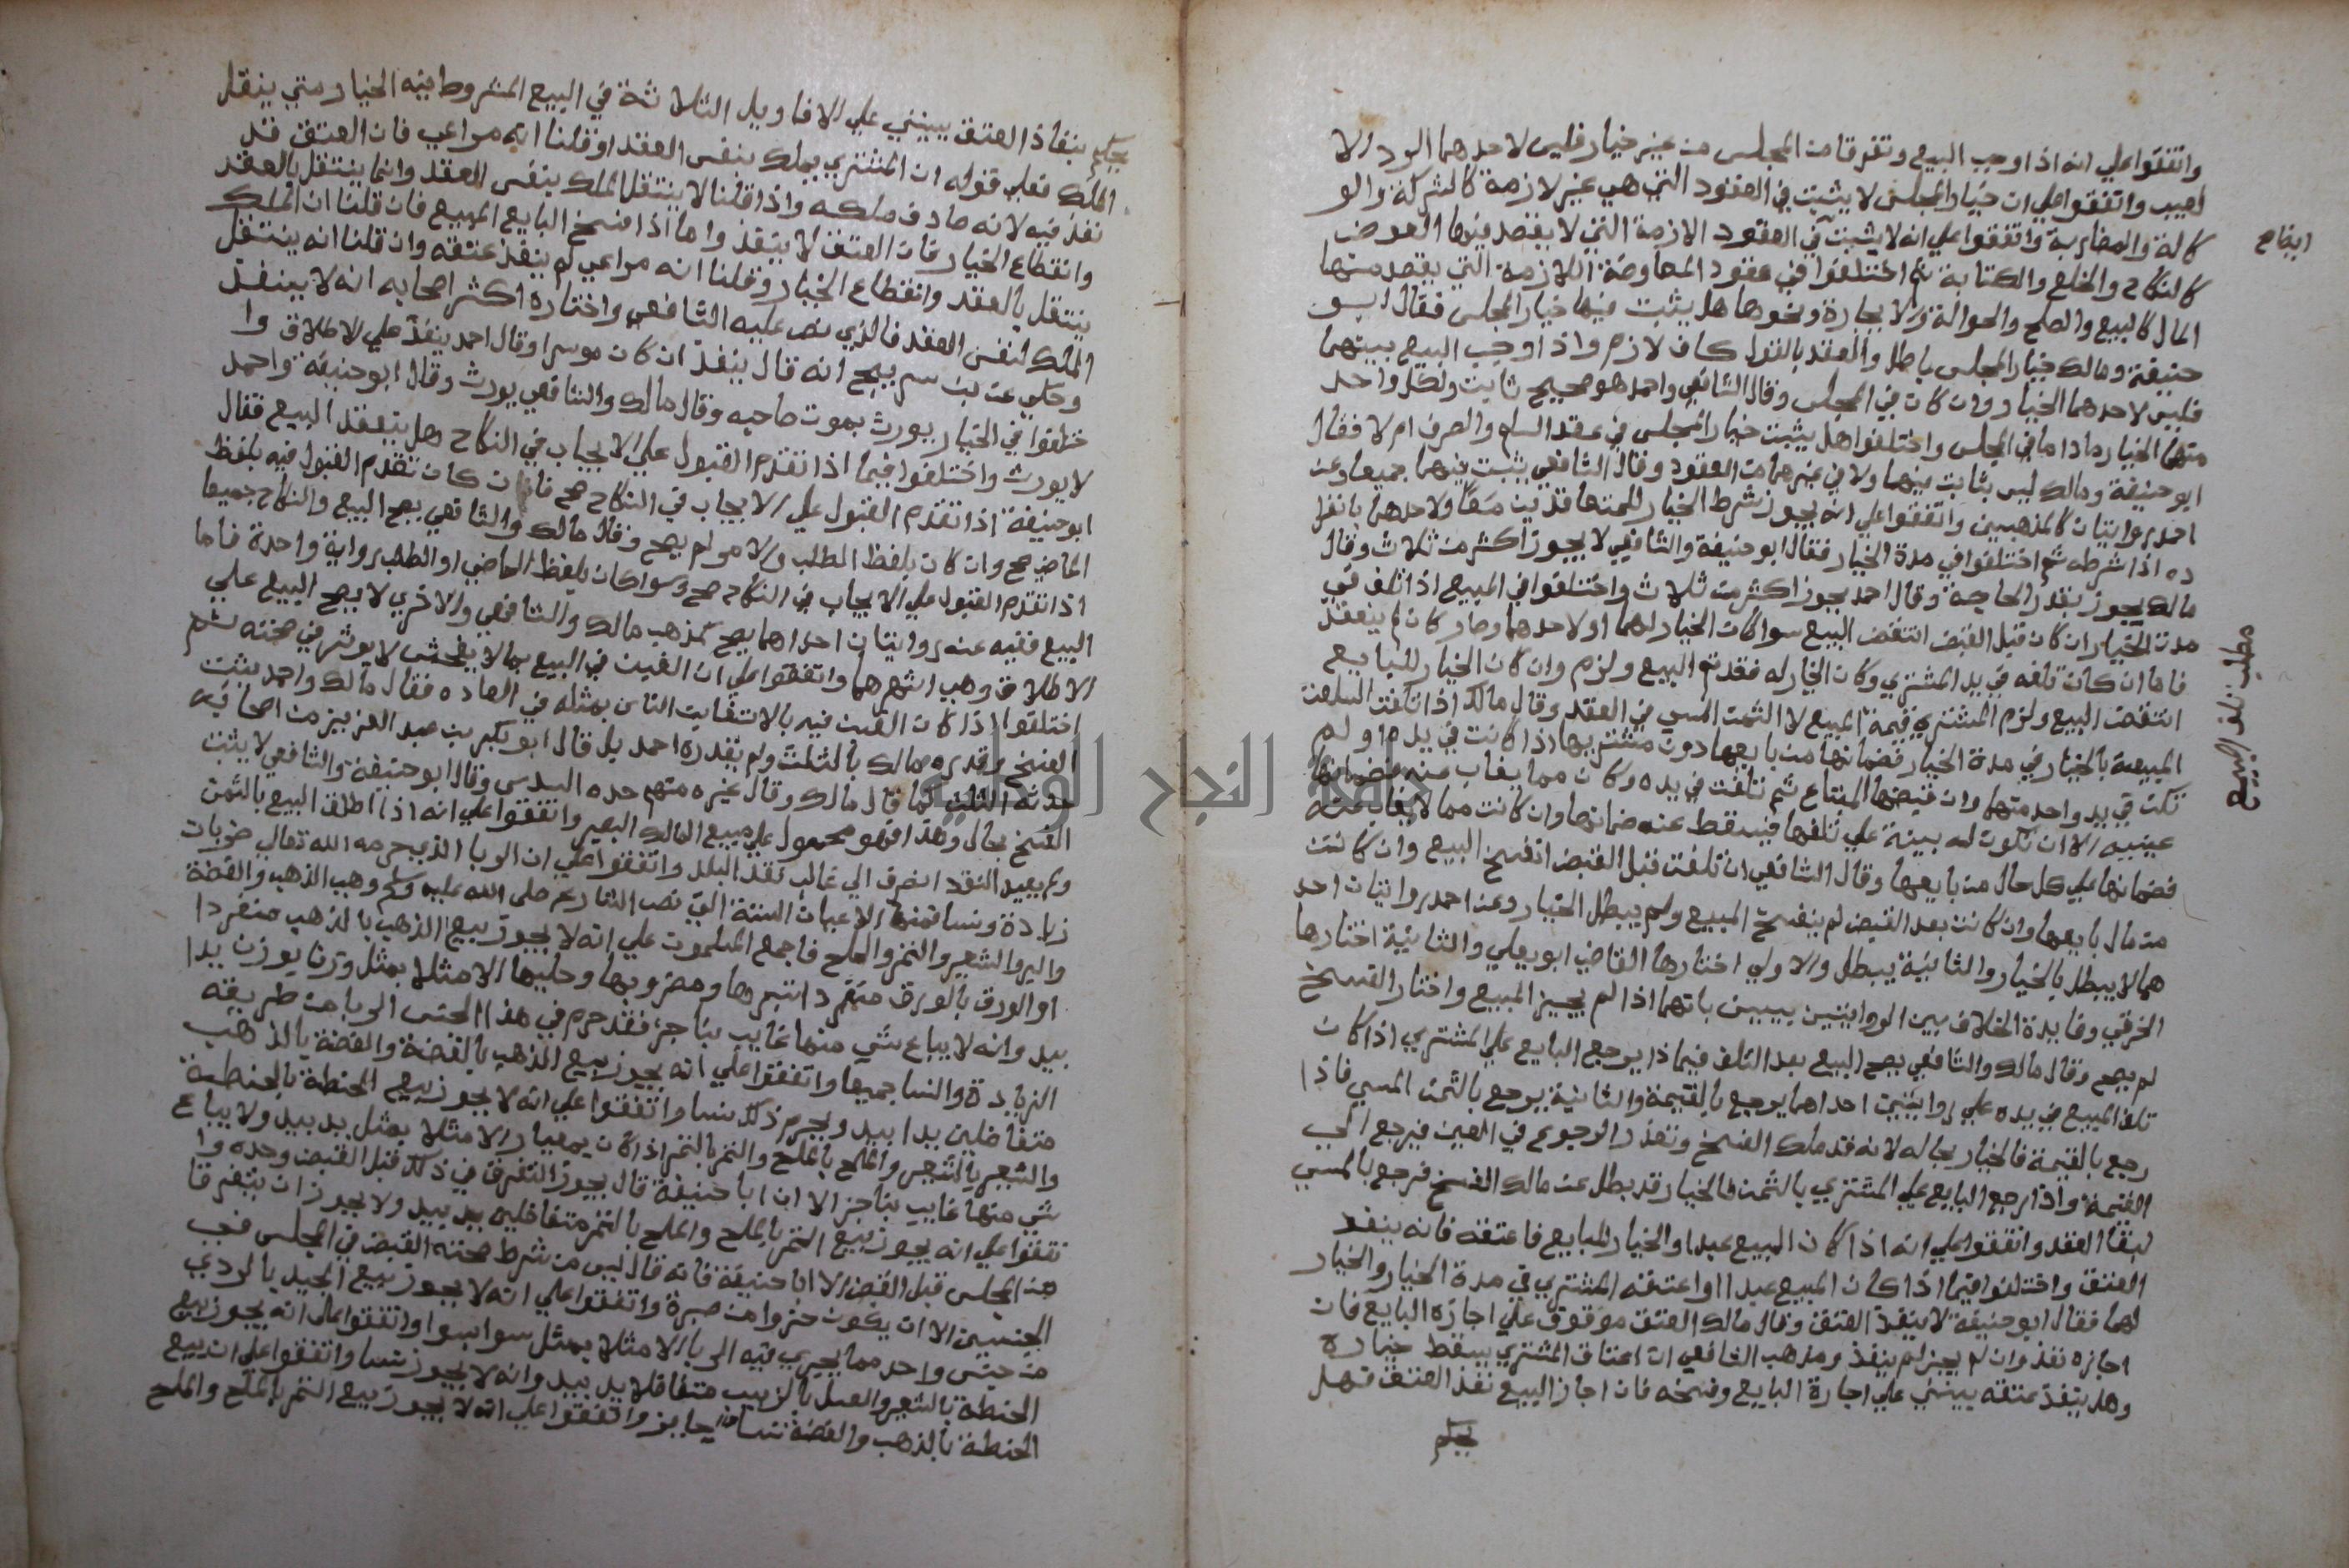 واتفقوا علي انه اذا اوجب البيع وتفرقا من المجلس من غير خيار فليس لاحدهما الرد الا
لعيب واتفقوا علي ان خيار المجلس لا يثبت في العقود التي هي غير لازمة كالشركة والو
كالة والمضاربة واتفقوا علي انه لا يثبت في العقود الازمة التي لا يقصد فيها العوض
كالنكاح والخلع والكتابة ثم اختلفوا في عقود المعاوضة اللازمة التي يقصد منها
المال كالبيع والصلح والحوالة والاجارة ونحوها هل يثبت فيها خيار المجلس فقال ابو
حنيفة ومالك خيار المجلس باطل والعقد بالقول كاف لازم واذا وجب البيع بينهما
فليس لاحدهما الخيار وان كان في المجلس وقال الشافعي واحمد هو صحيح ثابت ولكل واحد
منهما الخيار ماداما في المجلس واختلفوا هل يثبت خيار المجلس في عقد السلم والصرف ام لا فقال
ابو حنيفة ومالك ليس بثابت فيهما ولا في غيرهما من العقود وقال الشافعي يثبت فيهما جميعا وعن
احمد روايتان كالمذهبين واتفقوا علي انه يجوز شرط الخيار للمتعاقدين معًا ولاحدهما بانفرا
ده اذا شرطه ثم اختلفوا في مدة الخيار فقال ابو حنيفة والشافعي لا يجوز اكثر من ثلاث وقال
مالك يجوز بقدر الحاجة وقال احمد يجوز اكثر من ثلاث واختلفوا في المبيع اذا تلف في
مدت الخيار ان كان قبل القبض انتقض البيع سوا كان الخيار لهما او لاحدهما وصار كان لم ينعقد
فاما ان كان تلفه في يد المشتري وكان الخيار له فقد تم البيع ولزم وان كان الخيار للبايع
انتقض البيع ولزم المشتري قيمة المبيع لا الثمن المسمي في العقد وقال مالك اذا تلفت السلعة
المبيعة بالخيار في مدة الخيار فضمانها من بايعها دون مشتريها اذا كانت في يده او لم
تكن في يد واحد منهما وان قبضها المبتاع ثم تلفت في يده وكان مما يغاب عنه فضمانها
عينيه الا ان تكون له بينة علي تلفها فيسقط عنه ضمانها وان كانت مما لا يغاب عنه
فضمانها علي كل حال من بايعها وقال الشافعي ان تلفت قبل القبض انفسخ البيع وان كانت
من مال بايعها وان كانت بعد القبض لم ينفسخ المبيع ولم يبطل الخيار وعن احمد روايتان احد
هما لا يبطل بالخيار والثانية يبطل والاولي اختارها القاضي ابو يعلي والثانية اختارها
الخرقي وفايدة الخلاف بين الروايتين يبين بانهما اذا لم يجيز المبيع واختار الفسخ
لم يصح وقال مالك والشافعي يصح البيع بعد التلف فيماذا يرجع البايع علي المشتري اذا كان
تلف المبيع في يده علي روايتين احداهما يرجع بالقيمة والثانية يرجع بالثمن المسمي فاذا
رجع بالقيمة فالخيار بحاله لانه قد ملك الفسخ وتعذر الرجوع في العين فيرجع الي
القيمة واذا رجع البايع علي المشتري بالثمن فالخيار قد بطل عن مالك الفسخ فرجع بالمسمي
لبقا العقد واتفقوا علي انه اذا كان المبيع عبدا والخيار للبايع فاعتقه فانه ينفذ
العتق واختلفوا فيما اذا كان المبيع عبدا او اعتقه المشتري في مدة الخيار والخيار
لهما فقال ابو حنيفة لا ينفذ العتق وقال مالك العتق موقوف علي اجازه البايع فان
اجازه نفذ وان لم يجيز لم ينفذ ومذهب الشافعي ان اعتاق المشتري يسقط خياره
وهل ينفذ عتقه يبني علي اجازة البايع وفسخه فان اجاز البيع نفذ العتق فهل
يحكم
ايضاح
مطلب تلف المبيع
يحكم بنفاذ العتق يبني علي الاقاويل الثلاثة في البيع المشروط فيه الخيار متي ينقل
الملك فعلي قوله ان المشتري يملك بنفس العقد او قلنا انه مراعي فان العتق قد
نفذ فيه لانه صادف ملكه واذا قلنا لا ينتقل الملك بنفس العقد وانما ينتقل بالعقد
وانقطاع الخيار فان العتق لا ينفذ واما اذا فسخ البايع المبيع فان قلنا ان الملك
ينتقل بالعقد وانقطاع الخيار وقلنا انه مراعي لم ينفذ عتقه وان قلنا انه ينتقل
الملك لنفس العقد فالذي نص عليه الشافعي واختاره اكثر اصحابه انه لا ينفذ
وحكي عن بن سريج انه قال ينفذ ان كان موسرا وقال احمد ينفذ علي الاطلاق وا
ختلفوا في الخيار يورث بموت صاحبه وقال مالك والشافعي يورث وقال ابو حنيفة واحمد
لا يورث واختلفوا فيما اذا تقدم القبول علي الايجاب في النكاح هل ينعقد البيع فقال
ابو حنيفة اذا تقدم القبول علي الايجاب في النكاح صح فان كان تقدم القبول فيه بلفظ
الماضي صح وان كان بلفظ الطلب والامر لم يصح وقال مالك والشافعي يصح البيع والنكاح جميعا
اذا تقدم القبول علي الايجاب في النكاح صح وسوا كان بلفظ الماضي او الطلب رواية واحدة فاما
البيع ففيه عنه روايتان احداهما يصح كمذهب مالك والشافعي والاخري لا يصح البيع علي
الاطلاق وهي اشهرهما واتفقوا علي ان الغبن في البيع بما لا يفحش لا يوثر في صحته ثم
اختلفوا اذا كان الغبن فيه بالا يتغابن الناس بمثله في العاده فقال مالك واحمد يثبت
الفسخ وقدره مالك بالثلث ولم يقدره احمد بل قال ابو بكر بن عبد العزيز من اصحابه
حدثه الثلث كما قال مالك وقال غيره منهم حده السدس وقال ابو حنيفة والشافعي لا يثبت
الفسخ بحال وهذا فهو محمول علي مبيع المالك البصير واتفقوا علي انه اذا اطلق البيع بالثمن
ولم يعيد النقد انصرف الي غالب نقد البلد واتفقوا علي ان الربا الذي حرمه الله تعالي ضربات
زيادة ونسا فمنها الاعيان الستة التي نص الشارع صلى الله عليه وسلم وهي الذهب والفضة
والبر والشعير والتمر والملح فاجمع المسلمون علي انه لا يجوز بيع الذهب بالذهب منفردا
او الورق بالورق منفردا تبرها ومضروبها وحليها الا مثلا بمثل وزنا بوزن يدا
بيد وانه لا يباع شي منها غايب بناجز فقد حرم في هذا الجنس الربا من طريقه
الزيادة والنسا جميعا واتفقوا علي انه يجوز بيع الذهب بالفضة والفضة بالذهب
متفاضلين يدا بيد ويحرم ذلك نسا واتفقوا علي انه لا يجوز بيع الحنطة بالحنطة
والشعير بالشعير والملح بالملح والتمر بالتمر اذا كان بمعيار الا مثلا بمثل يد بيد ولا يباع
شي منها غايب بناجز الا ان ابا حنيفة قال يجوز التفرق في ذلك قبل القبض وحده وا
تفقوا علي انه يجوز بيع التمر بالملح والملح بالتمر متفاضلين يد بيد ولا يجوز ان يتفرقا
من المجلس قبل القبض الا ابا حنيفة فانه قال ليس من شرط صحته القبض في المجلس فيجب
الجنسين الا ان يكون من صبرة واتفقوا علي انه لا يجوز بيع الجيد بالردي
من جنس واحد مما يجري فيه الربا الا مثلا بمثل سوا بسوا واتفقوا علي انه يجوز بيع
الحنطة بالشعير والعسل بالزبيب متفاضلا يد بيد وانه لا يجوز نسا واتفقوا علي ان بيع
الحنطة بالذهب والفضة نسا جايز واتفقوا علي انه لا يجوز بيع التمر بالملح والملح